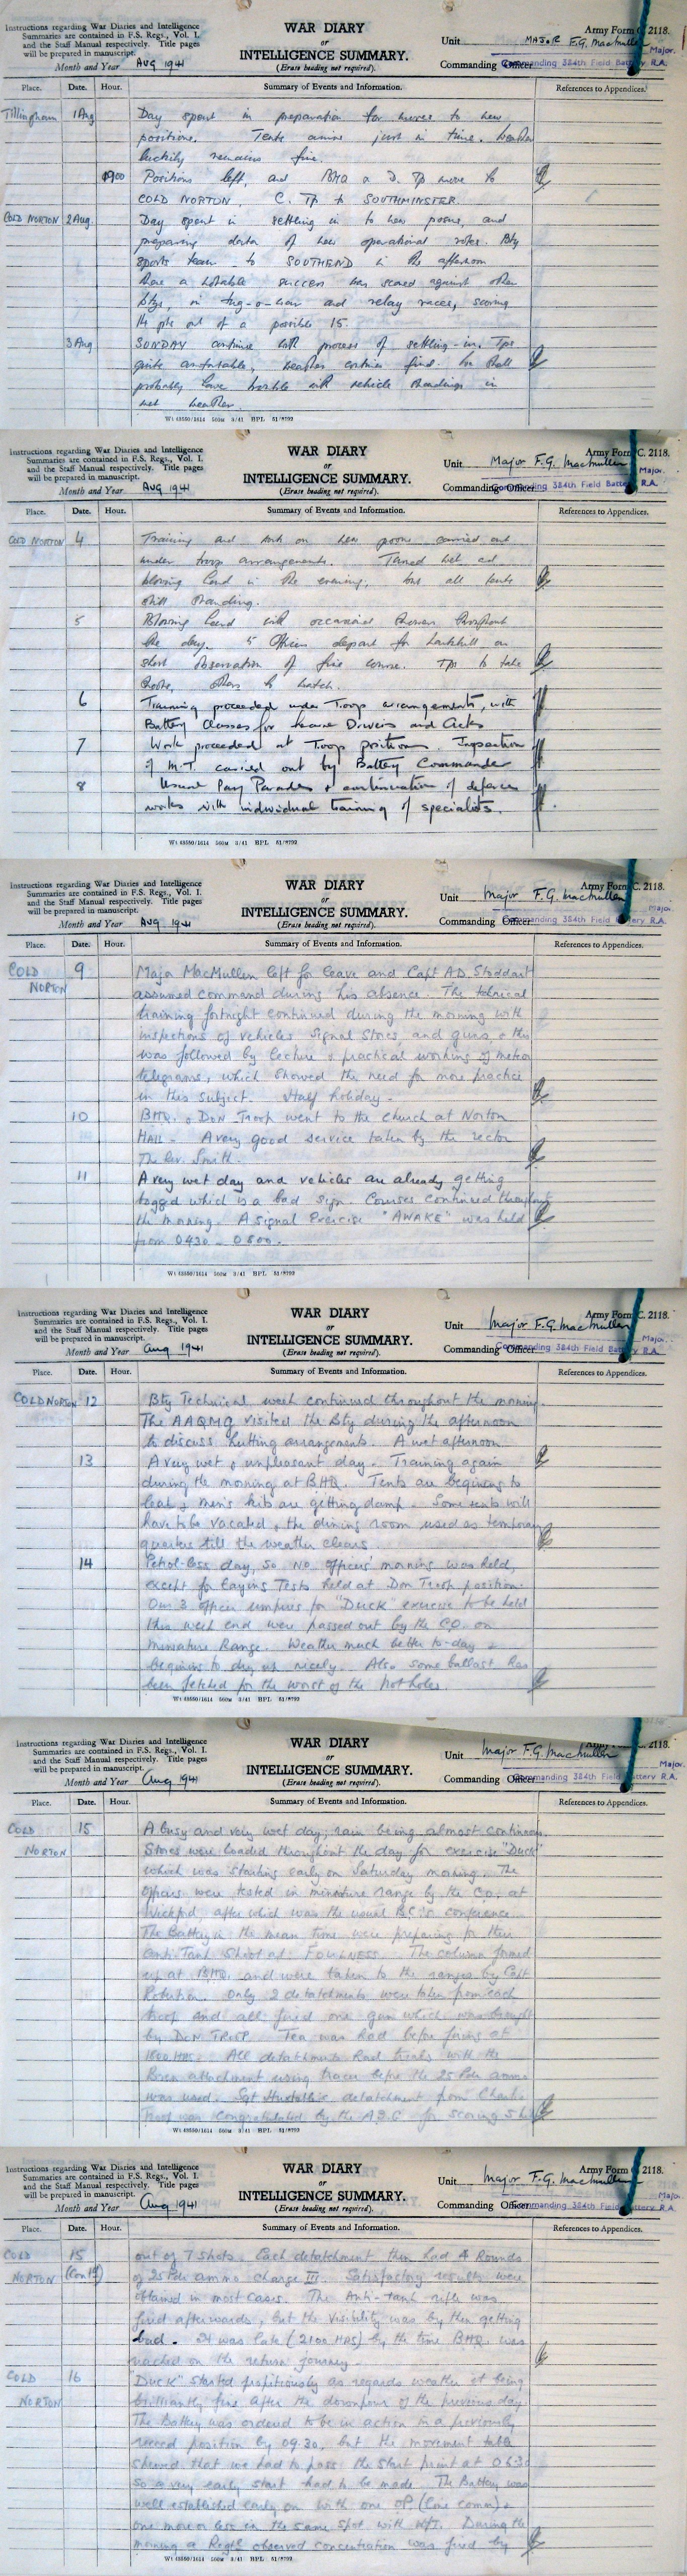 Instructions regarding War Diaries and Intelligence
Summaries are contained in F.S. Regs., Vol. I.
and the Staff Manual respectively. Title pages
will be prepared in manuscript.
Month and Year AUG 1941
WAR DIARY
or
INTELLIGENCE SUMMARY.
(Erase heading not required).
Army Form C. 2118.
Unit MAJOR F.G. MacMullen
Major.
Commanding Officer Commanding 384th Field Battery R.A.
Place. Date. Hour. Summary of Events and Information. References to Appendices.
Tillingham 1 Aug Day spent in preparation for moves to new
positions. Tents arrive just in time. Weather
luckily remains fine.
1900 Positions left, and BHQ & D. Tp move to
COLD NORTON, C. Tp to SOUTHMINSTER.
COLD NORTON 2 Aug. Day spent in settling in to new posns and
preparing data of new operational roles. Bty
sports team to SOUTHEND in the afternoon
where a notable success was scored against other
btys, in tug-o-war and relay races, scoring
14 pts out of a possible 15.
3 Aug SUNDAY continue with process of settling-in. Tps
quite comfortable, weather continues fine. We shall
probably have trouble with vehicle standings in
wet weather.
Wt 43550/1614 500M 3/41 BPL 51/8792
Instructions regarding War Diaries and Intelligence
Summaries are contained in F.S. Regs., Vol. I.
and the Staff Manual respectively. Title pages
will be prepared in manuscript.
Month and Year AUG 1941
WAR DIARY
or
INTELLIGENCE SUMMARY.
(Erase heading not required).
Army Form C. 2118.
Unit Major F.G. MacMullen
Major.
Commanding Officer Commanding 384th Field Battery R.A.
Place. Date. Hour. Summary of Events and Information. References to Appendices.
COLD NORTON 4 Training and work on new posns carried out
under troop arrangements. Turned wet and
blowing hard in the evening, but all tents
still standing.
5 Blowing hard with occasional showers throughout
the day. 5 Officers depart for Larkhill on
short observation of fire course. Tps to take
shoots, others to watch.
6 Training proceeded under Troop arrangements, with
Battery Classes for Driver and Acks
7 Work proceeded at Troop positions. Inspection
of M.T. carried out by Battery Commander
8 Usual Pay Parades & continuation of defence
works with individual training of specialists.
Wt 43550/1614 500M 3/41 BPL 51/8792
Instructions regarding War Diaries and Intelligence
Summaries are contained in F.S. Regs., Vol. I.
and the Staff Manual respectively. Title pages
will be prepared in manuscript.
Month and Year AUG 1941
WAR DIARY
or
INTELLIGENCE SUMMARY.
(Erase heading not required).
Army Form C. 2118.
Unit Major F.G. MacMullen
Major.
Commanding Officer Commanding 384th Field Battery R.A.
Place. Date. Hour. Summary of Events and Information. References to Appendices.
COLD 9 Major MacMullen left for leave and Capt A.D. Stoddart
NORTON assumed command during his absence. The technical
training fortnight continued during the morning with
inspections of vehicles Signal Stores, and guns, & this
was followed by lecture & practical working of meteor
telegrams, which showed the need for more practice
in this subject. Half holiday -
10 BHQ. & DON Troop went to the church at Norton
HALL - A very good service taken by the rector
The Rev. Smith.
11 A very wet day and vehicles are already getting
bogged which is a bad sign. Courses continued throughout
the morning. A signal Exercise "AWAKE" was held
from 0430 - 0800.
Wt 43550/1614 500M 3/41 BPL 51/8792
Instructions regarding War Diaries and Intelligence
Summaries are contained in F.S. Regs., Vol. I.
and the Staff Manual respectively. Title pages
will be prepared in manuscript.
Month and Year Aug 1941
WAR DIARY
or
INTELLIGENCE SUMMARY.
(Erase heading not required).
Army Form C. 2118.
Unit Major F.G. MacMullen
Major.
Commanding Officer Commanding 384th Field Battery R.A.
Place. Date. Hour. Summary of Events and Information. References to Appendices.
COLD NORTON 12 Bty Technical week continued throughout the morning.
The AAQMG visited the Bty during the afternoon
to discuss hutting arrangements. A wet afternoon.
13 A very wet & unpleasant day - Training again
during the morning at BHQ. Tents are begining to
leak & men's kits are getting damp - Some tents will
have to be vacated, & the dining room used as temporary
quarters till the weather clears.
14 Petrol-less day, so No officers' morning was held,
except for Laying Tests held at Don Troop position.
Our 3 officer umpires for "Duck" exercise to be held
this week end were passed out by the C.O. on
miniature Range. Weather much better to-day &
begining to dry up nicely. Also some ballast has
been fetched for the worst of the pot holes.
Wt 43550/1614 500M 3/41 BPL 51/8792
Instructions regarding War Diaries and Intelligence
Summaries are contained in F.S. Regs., Vol. I.
and the Staff Manual respectively. Title pages
will be prepared in manuscript.
Month and Year Aug 1941
WAR DIARY
or
INTELLIGENCE SUMMARY.
(Erase heading not required).
2118.
Unit Major F.G. MacMullen
Major.
Commanding Officer Commanding 384th Field Battery R.A.
Place. Date. Hour. Summary of Events and Information. References to Appendices.
COLD 15 A busy and very wet day, rain being almost continuous.
NORTON Stores were loaded throughout the day for exercise "Duck"
which was starting early on Saturday morning. The
officers were tested in miniature range by the C.O. at
Wickford after which was the usual B.C.'s conference.
The Battery in the mean time were preparing for their
Anti-Tank Shoot at FOULNESS. The column formed
up at BHQ. and were taken to the ranges by Capt
Only 2 detatchments were taken from each
troop and all fired one gun which was brought
by DON TROOP. Tea was had before firing at
1800 HRS. All detatchments had trials with the
Bren attachment using tracer before the 25 Pdr ammo
was used. Sgt detatchment from Charlie
Troop was congratulated by the for scoring 5 hits
Wt 43550/1614 500M 3/41 BPL 51/8792
Instructions regarding War Diaries and Intelligence
Summaries are contained in F.S. Regs., Vol. I.
and the Staff Manual respectively. Title pages
will be prepared in manuscript.
Month and Year Aug 1941
WAR DIARY
or
INTELLIGENCE SUMMARY.
(Erase heading not required).
Army Form C. 2118.
Unit Major F.G. MacMullen
Major.
Commanding Officer Commanding 384th Field Battery R.A.
Place. Date. Hour. Summary of Events and Information. References to Appendices.
COLD 15 out of 7 shots. Each detatchment then had 4 Rounds
NORTON (Contd) of 25 Pdr ammo charge III. Satisfactory results were
obtained in most cases. The Anti-tank rifle was
fired afterwards, but the visibility was by then getting
bad. It was late (2100 HRS) by the time BHQ. was
reached on the return journey.
COLD 16 "DUCK" started propitiously as regards weather it being
NORTON brilliantly fine after the downpour of the previous day
The Battery was ordered to be in action in a previously
recced position by 09.30, but the movement table
showed that we had to pass the start point at 06.30
so a very early start had to be made. The Battery was
well established early on with one OP (line comm) &
one more or less in the same spot with W/T. During the
morning a Regtl observed concentration was fired by
Wt 43550/1614 500M 3/41 BPL 51/8792